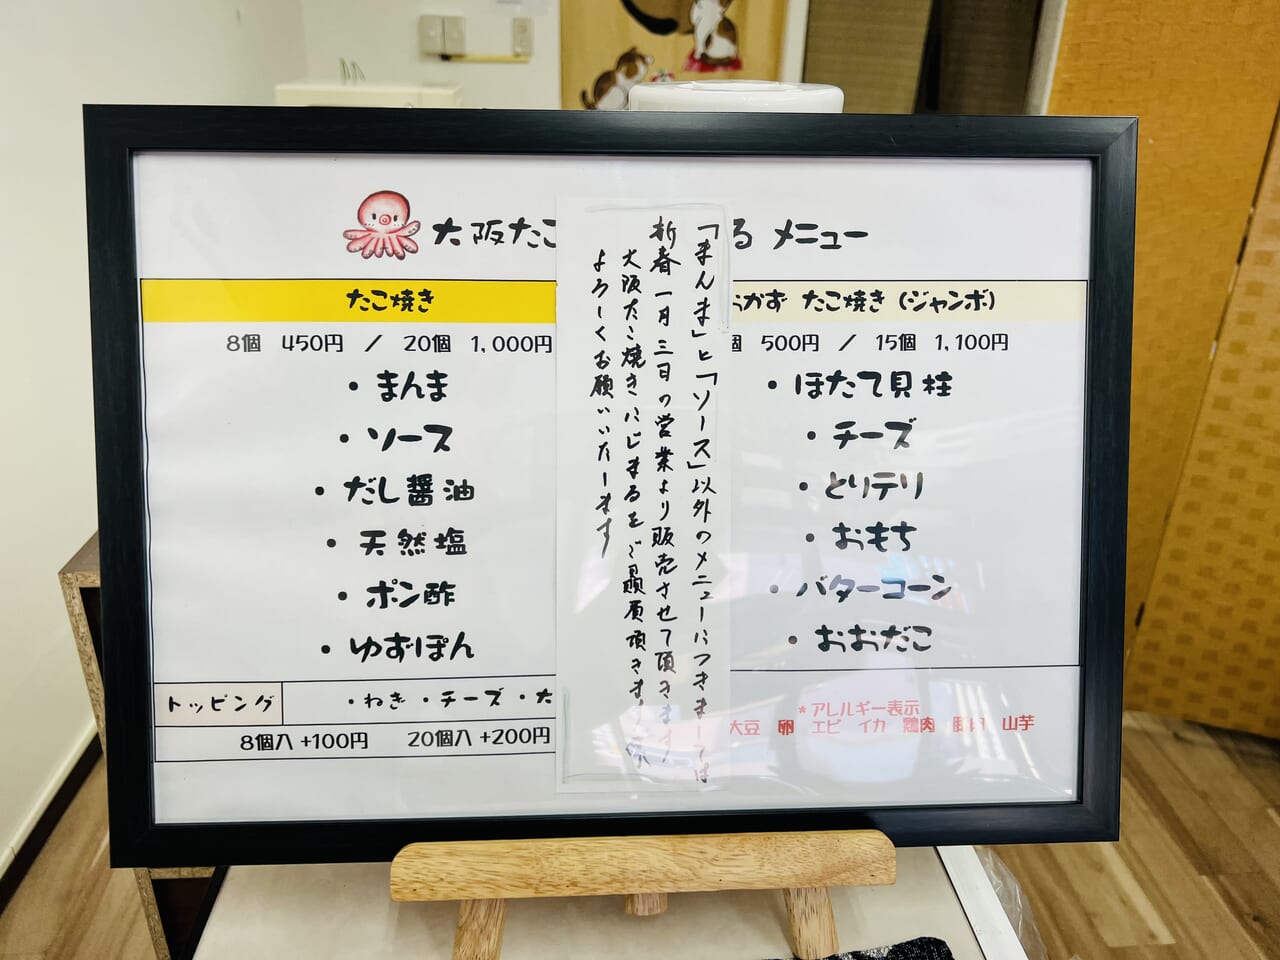 大阪たこ
る メニュー
たこ焼き
8個 450円 / 20個 1,000円
・まんま
・ソース
・だし醤油
・天然塩
・ポン酢
・ゆずぽん
トッピング
・ねぎ・チーズ・大
8個入 +100円 20個入 +200円
「まんま」と「ソース」以外のメニューにつきましては
新春一月三日の営業より販売させて頂きます。
大阪たこ焼きにじまるをご贔屓頂きます様
よろしくお願いいたします
おかず たこ焼き (ジャンボ)
個 500円 / 15個 1,100円
・ほたて貝柱
・チーズ
・とりテリ
・おもち
・バターコーン
・おおだこ
*アレルギー表示
大豆 卵 エビ イカ 鶏肉 豚肉 山芋